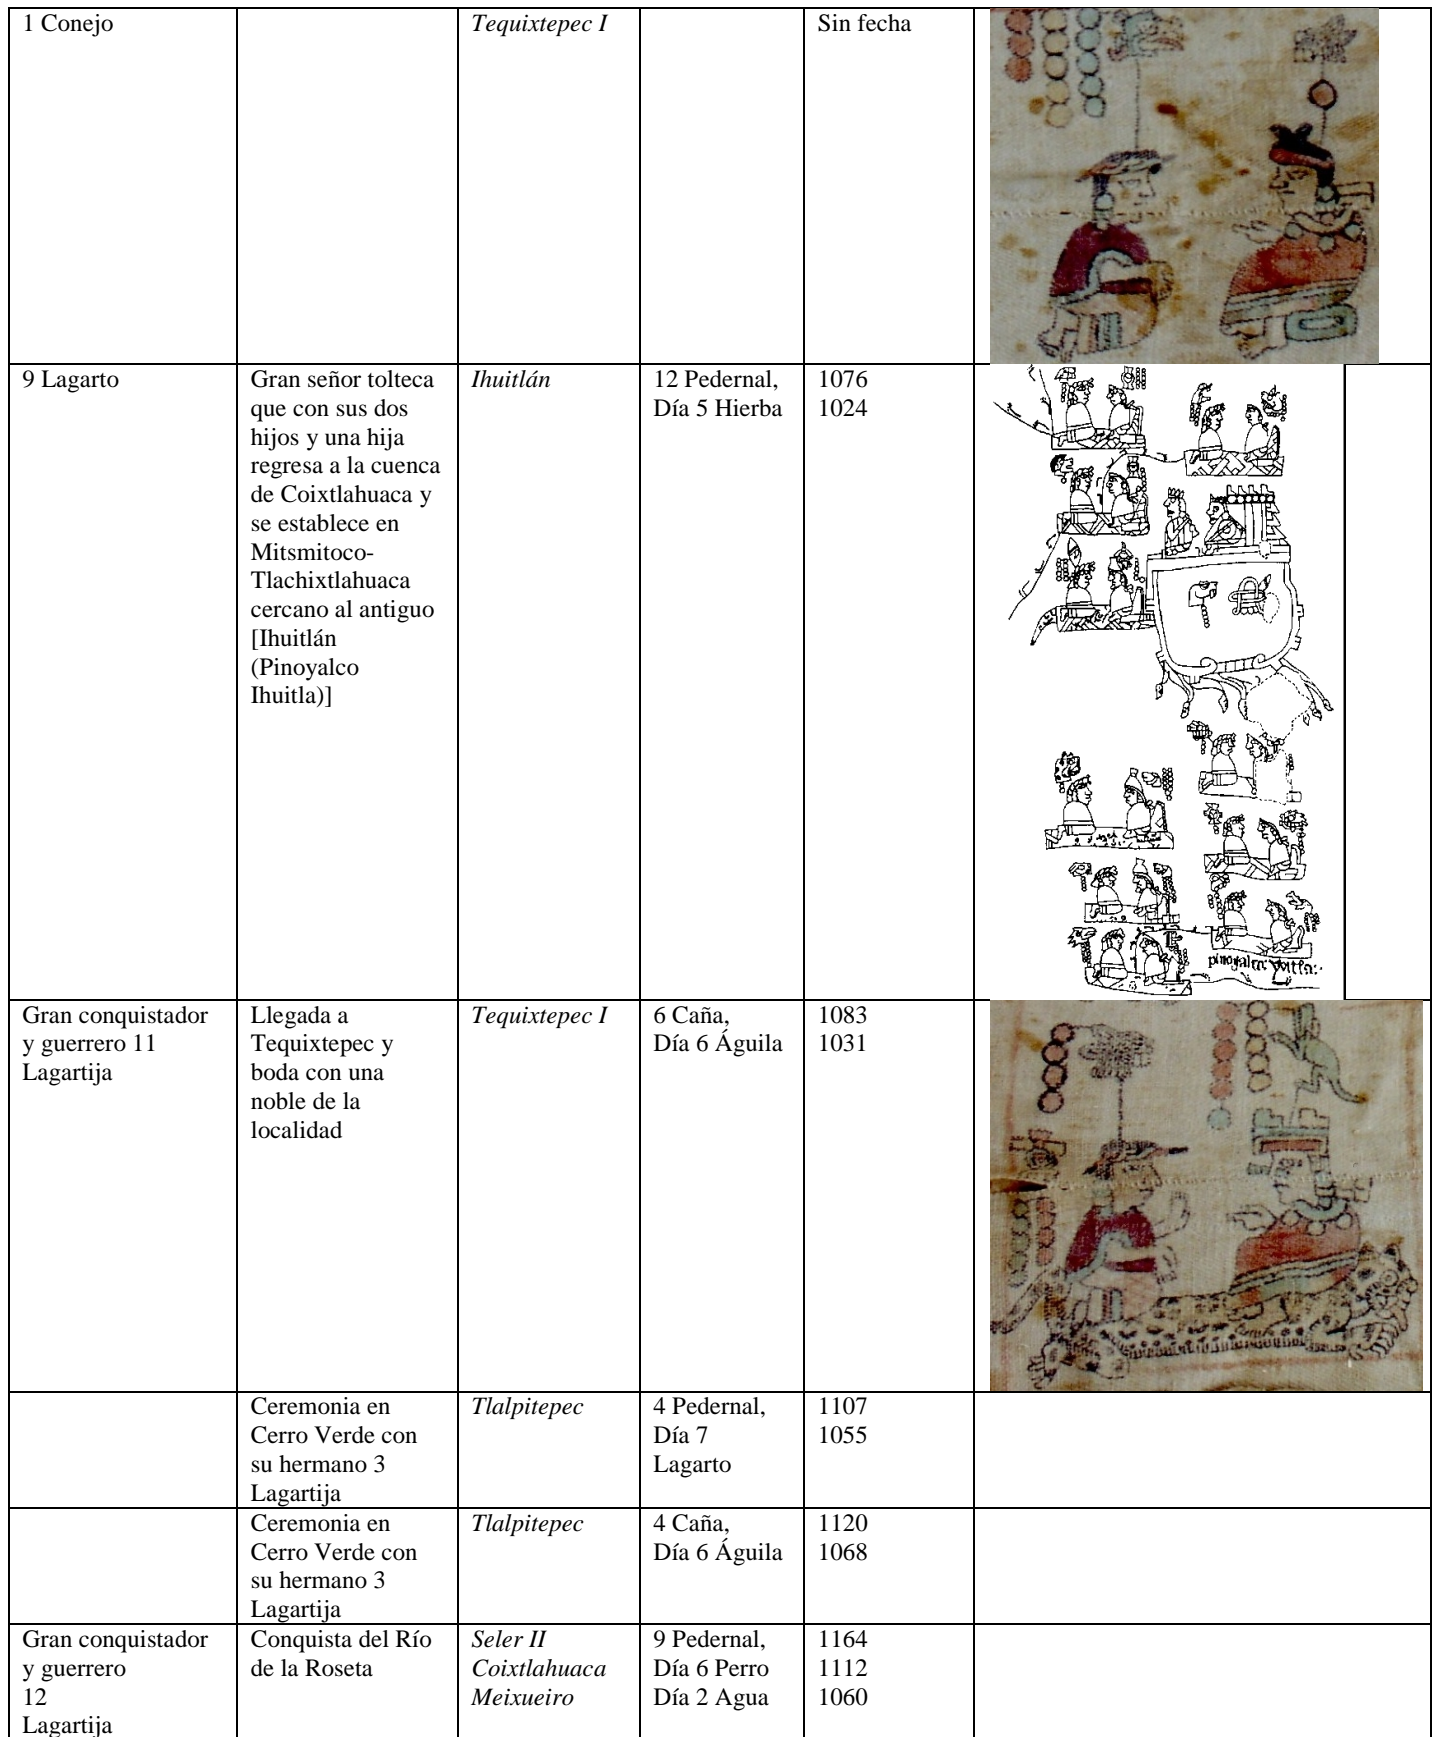 1 Conejo
Tequixtepec I
Sin fecha
9 Lagarto
Gran señor tolteca
que con sus dos
hijos y una hija
regresa a la cuenca
de Coixtlahuaca y
se establece en
Mitsmitoco-
Tlachixtlahuaca
cercano al antiguo
[Ihuitlán
(Pinoyalco
Ihuitla)]
Ihuitlán
12 Pedernal,
Día 5 Hierba
1076
1024
pinoyalco yuitla:
Gran conquistador
y guerrero 11
Lagartija
Llegada a
Tequixtepec y
boda con una
noble de la
localidad
Tequixtepec I
6 Caña,
Día 6 Águila
1083
1031
Ceremonia en
Cerro Verde con
su hermano 3
Lagartija
Tlalpitepec
4 Pedernal,
Día 7
Lagarto
1107
1055
Ceremonia en
Cerro Verde con
su hermano 3
Lagartija
Tlalpitepec
4 Caña,
Día 6 Águila
1120
1068
Gran conquistador
y guerrero
12
Lagartija
Conquista del Río
de la Roseta
Seler II
Coixtlahuaca
Meixueiro
9 Pedernal,
Día 6 Perro
Día 2 Agua
1164
1112
1060